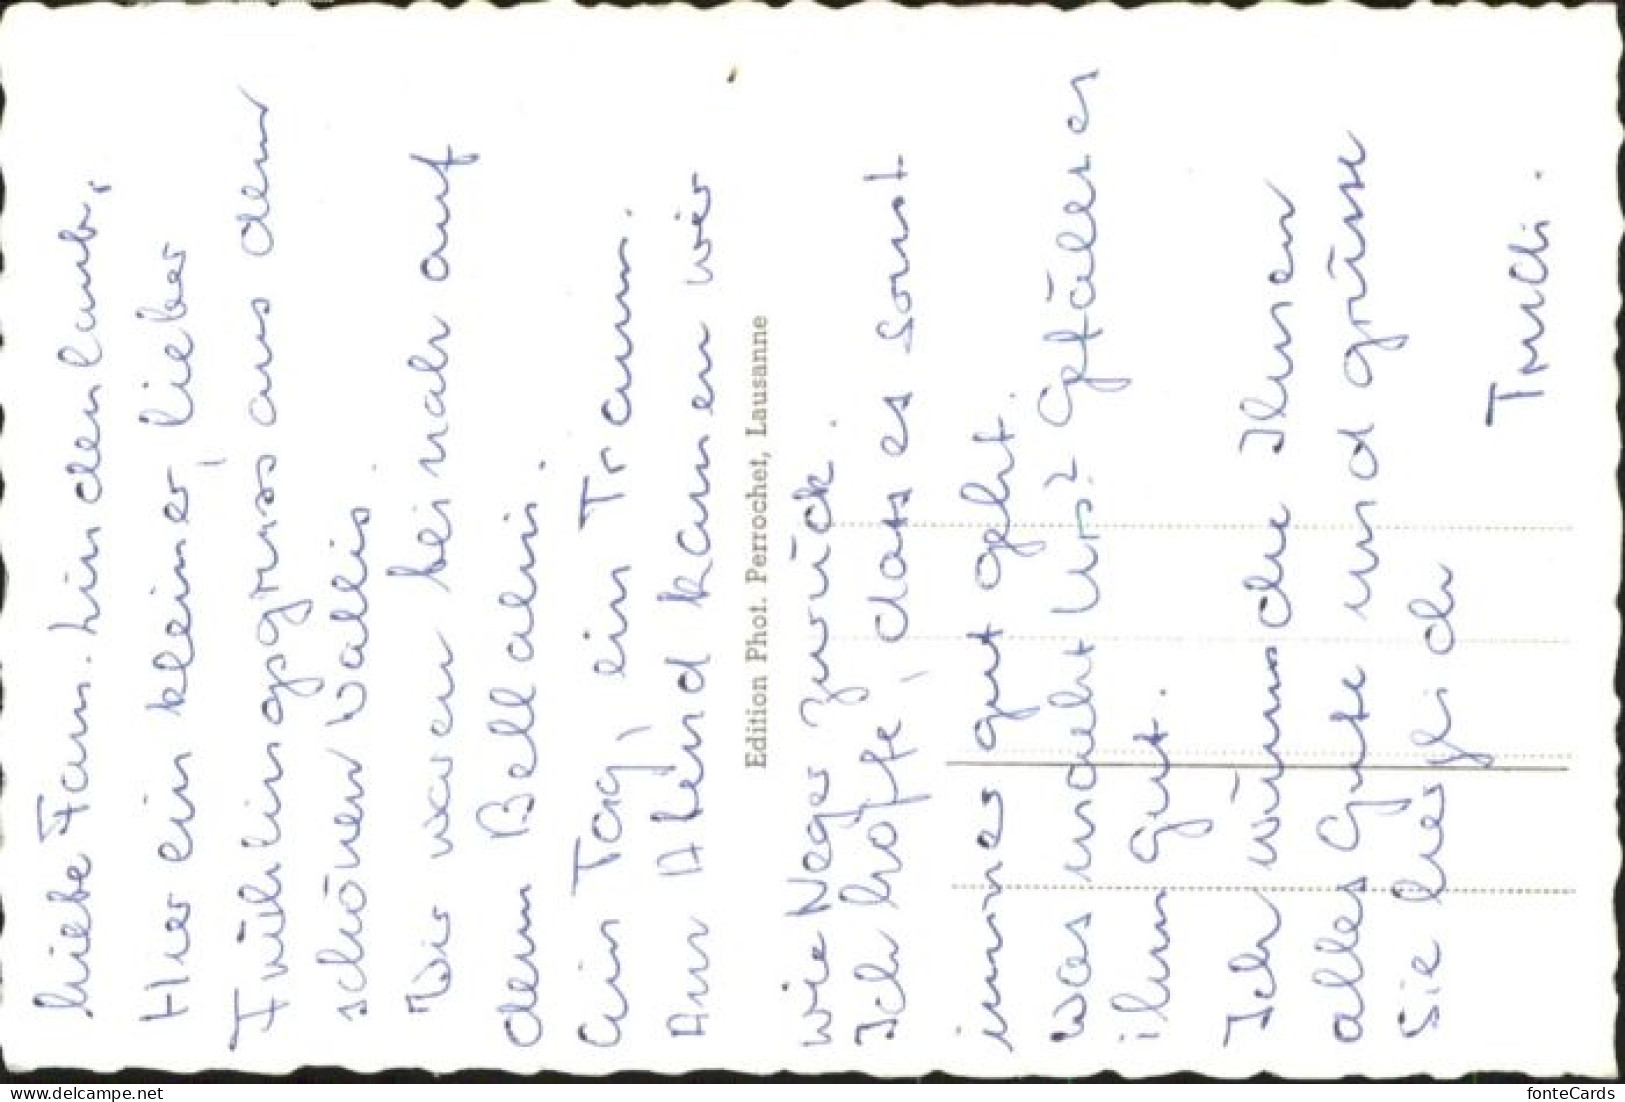 Liebe Fam. Lindenlaub,
Hier ein kleiner, lieber
Frühlingsgruss aus dem
schönen Wallis.
Wir waren beinah auf
dem Bellalui.
Ein Tag, ein Traum.
Am Abend kamen wir
Edition Phot. Perrochet, Lausanne
wie Neger zurück.
Ich hoffe, dass es sonst
immer gut geht.
Was macht Urs? Gefällt es
ihm gut.
Ich wünsche Ihnen
alles Gute und grüsse
Sie herzlich
Trudi.
delcampe.net
fonteCards